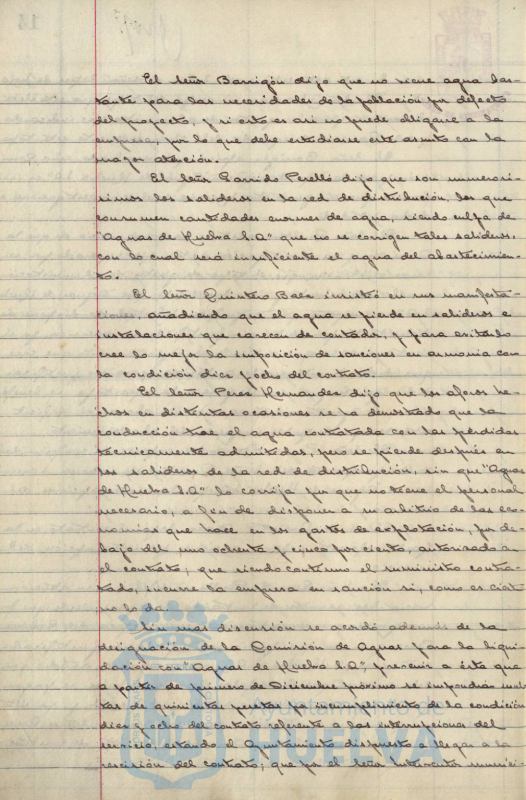 El Señor Barrigón dijo que no viene agua bas-
tante para las necesidades de la población por defecto
del proyecto, y si esto es así no puede obligarse a la
empresa, por lo que debe estudiarse este asunto con la
mayor atención.
El Señor Garrido Perelló dijo que son numerosí-
simos los salideros en la red de distribución, los que
consumen cantidades enormes de agua, siendo culpa de
"Aguas de Huelva S.A" que no se corrigen tales salideros,
con lo cual será insuficiente el agua del abastecimien-
to.
El Señor Quintero Baez insistió en sus manifesta-
ciones, añadiendo que el agua se pierde en salideros e
instalaciones que carecen de contador, y para evitarlo
cree lo mejor la imposición de sanciones en armonia con
la condición diez y ocho del contrato.
El Señor Perez Hernandez dijo que los aforos he-
chos en distintas ocasiones se ha demostrado que la
conducción trae el agua contratada con las pérdidas
técnicamente admitidas, pero se pierde después en
los salideros de la red de distribución, sin que "Aguas
de Huelva S.A" lo corrija por que no tiene el personal
necesario, a fin de disponer a su arbitrio de las eco-
nomias que hace en los gastos de explotación, por de-
bajo del uno ochenta y cinco por ciento, autorizado en
el contrato; que siendo continuo el suministro contra-
tado, incurre la empresa en sanción si, como es cierto
no lo da.
Sin mas discusión se acordó además de la
designación de la Comisión de Aguas para la liqui-
dación con "Aguas de Huelva S.A", prevenir a ésta que
a partir de primero de Diciembre próximo se impondrán mul-
tas de quinientas pesetas por incumplimiento de la condición
diez y ocho del contrato referente a las interrupciones del
servicio, estando el Ayuntamiento dispuesto a llegar a la
rescisión del contrato; que por el Señor Interventor munici-
HUELVA